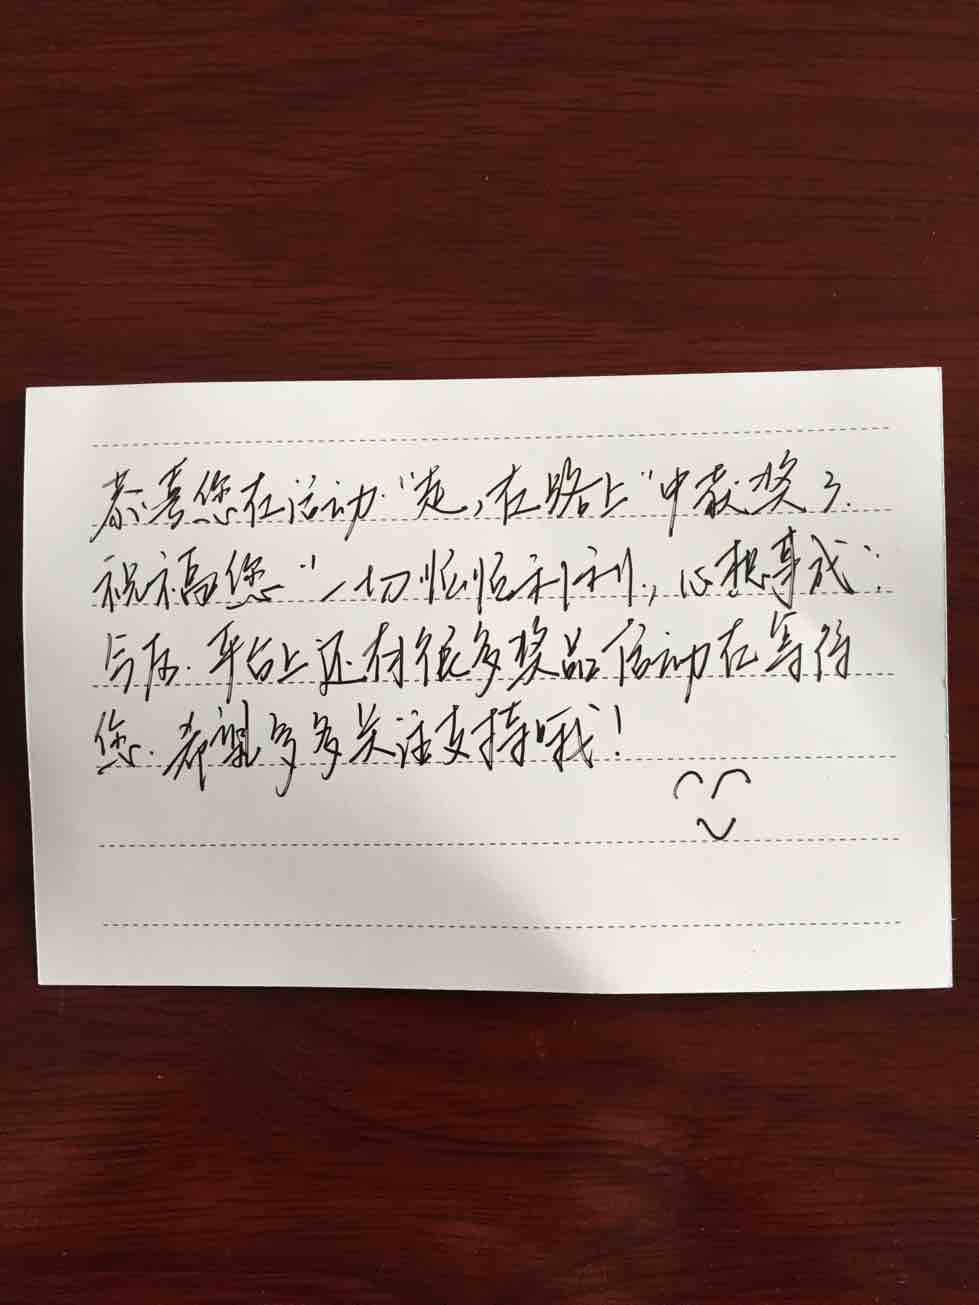 恭喜您在活动“走,在路上”中获奖了.
祝福您“一切恒恒利利,心想事成”.
今后.平台上还有很多奖品活动在等待
您.希望多多关注支持哦!